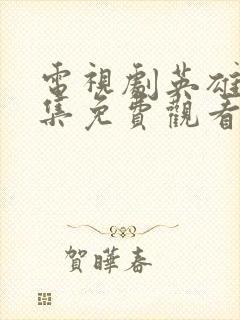 電視劇英雄
集免費觀看
賀曄春